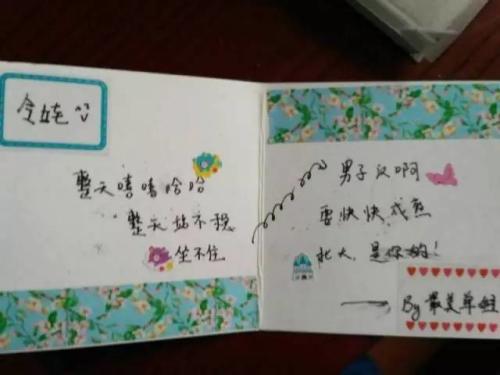 整天嘻嘻哈哈
整天站不稳
坐不住
男子汉啊
要快快成熟
北大是你的!
——By 最美单姐